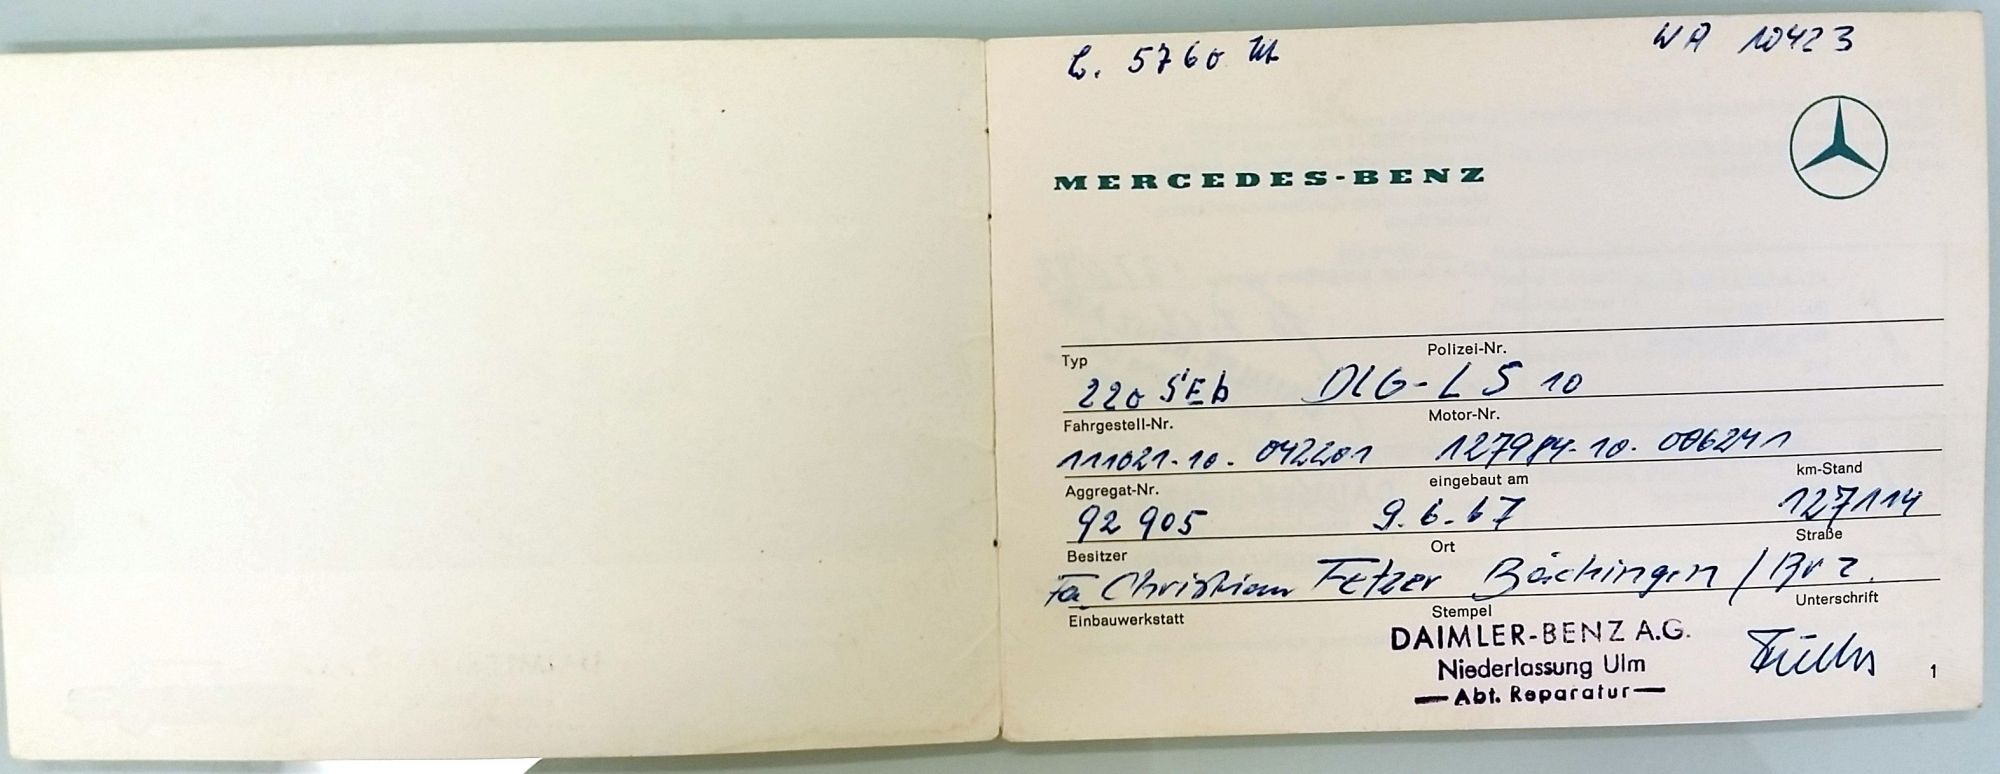 L. 5760 Ul WA 10423
MERCEDES-BENZ
Typ Polizei-Nr.
220 SEb DLG-LS 10
Fahrgestell-Nr. Motor-Nr.
111021-10. 042201 127984-10. 006241
Aggregat-Nr. eingebaut am km-Stand
92 905 9.6.67 127114
Besitzer Ort Straße
Fa. Christian Fetzer Bächingen / Brz.
Einbauwerkstatt Stempel Unterschrift
DAIMLER-BENZ A.G.
Niederlassung Ulm
—Abt. Reparatur—
Fuchs
1